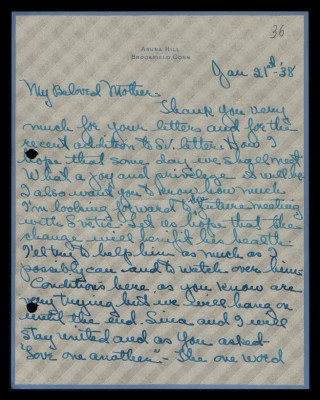 36
Aruba Hill
Brookfield Conn
Jan 21st - '38
My Beloved Mother -
Thank you very
much for your letters and for the
recent addition to letter. How I
hope that some day we shall meet
What a joy and privilege it will be
I also want you to know how much
I'm looking forward to future meeting
with Svetic. Let us hope that the
change will benefit his health.
I'll try to help him as much as I
possibly can and to watch over him
Conditions here as you know are
very trying but we will hang on
until the end. Sina and I will
stay united and as you asked -
"Love one another" - The one word